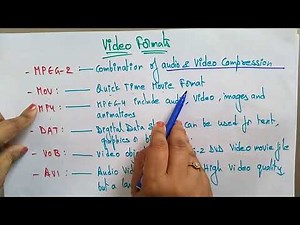 Video Formats
- MPEG-2 :— Combination of audio & Video Compression
- MOV :— Quick Time Movie Format
- MP4 :— MPEG-4 include audio, Video, images and
animations
- DAT :— Digital Data can be used for text,
graphics
- VOB :— Video DVD Video movie file
- AVI :— Audio Video High Video quality,
but a